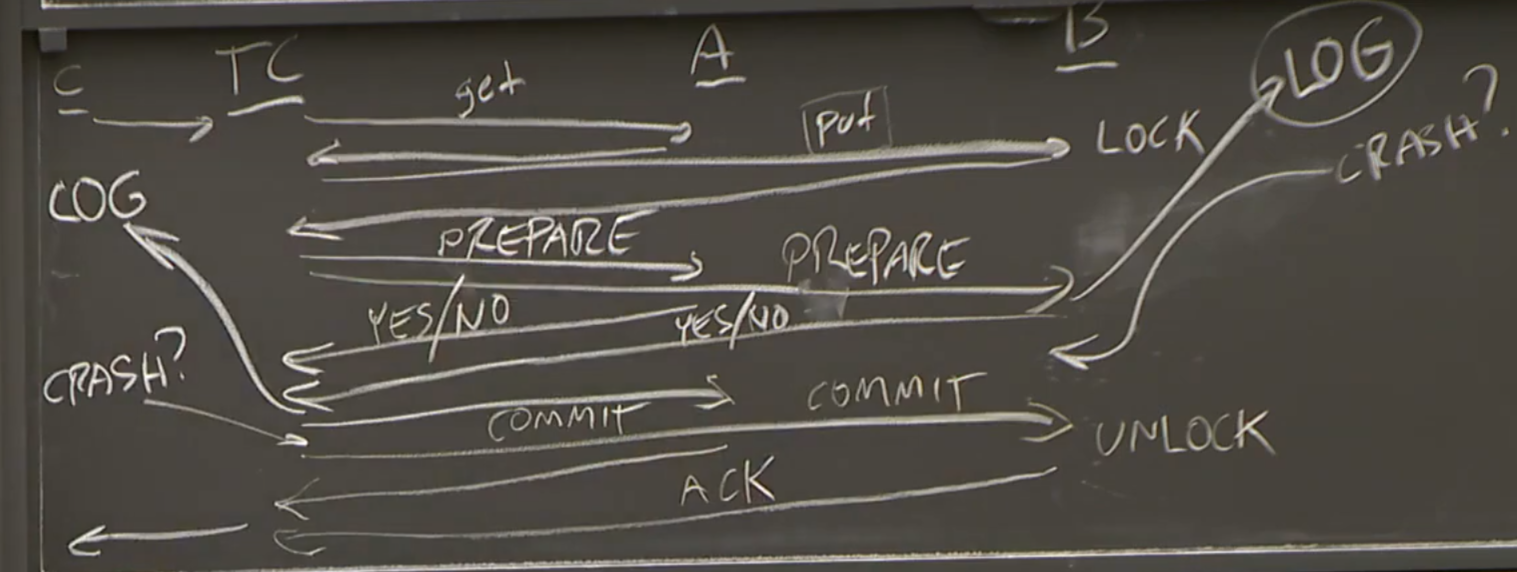 C TC A B LOG
get
put LOCK CRASH?
LOG
PREPARE PREPARE
YES/NO YES/NO
CRASH?
COMMIT COMMIT
UNLOCK
ACK